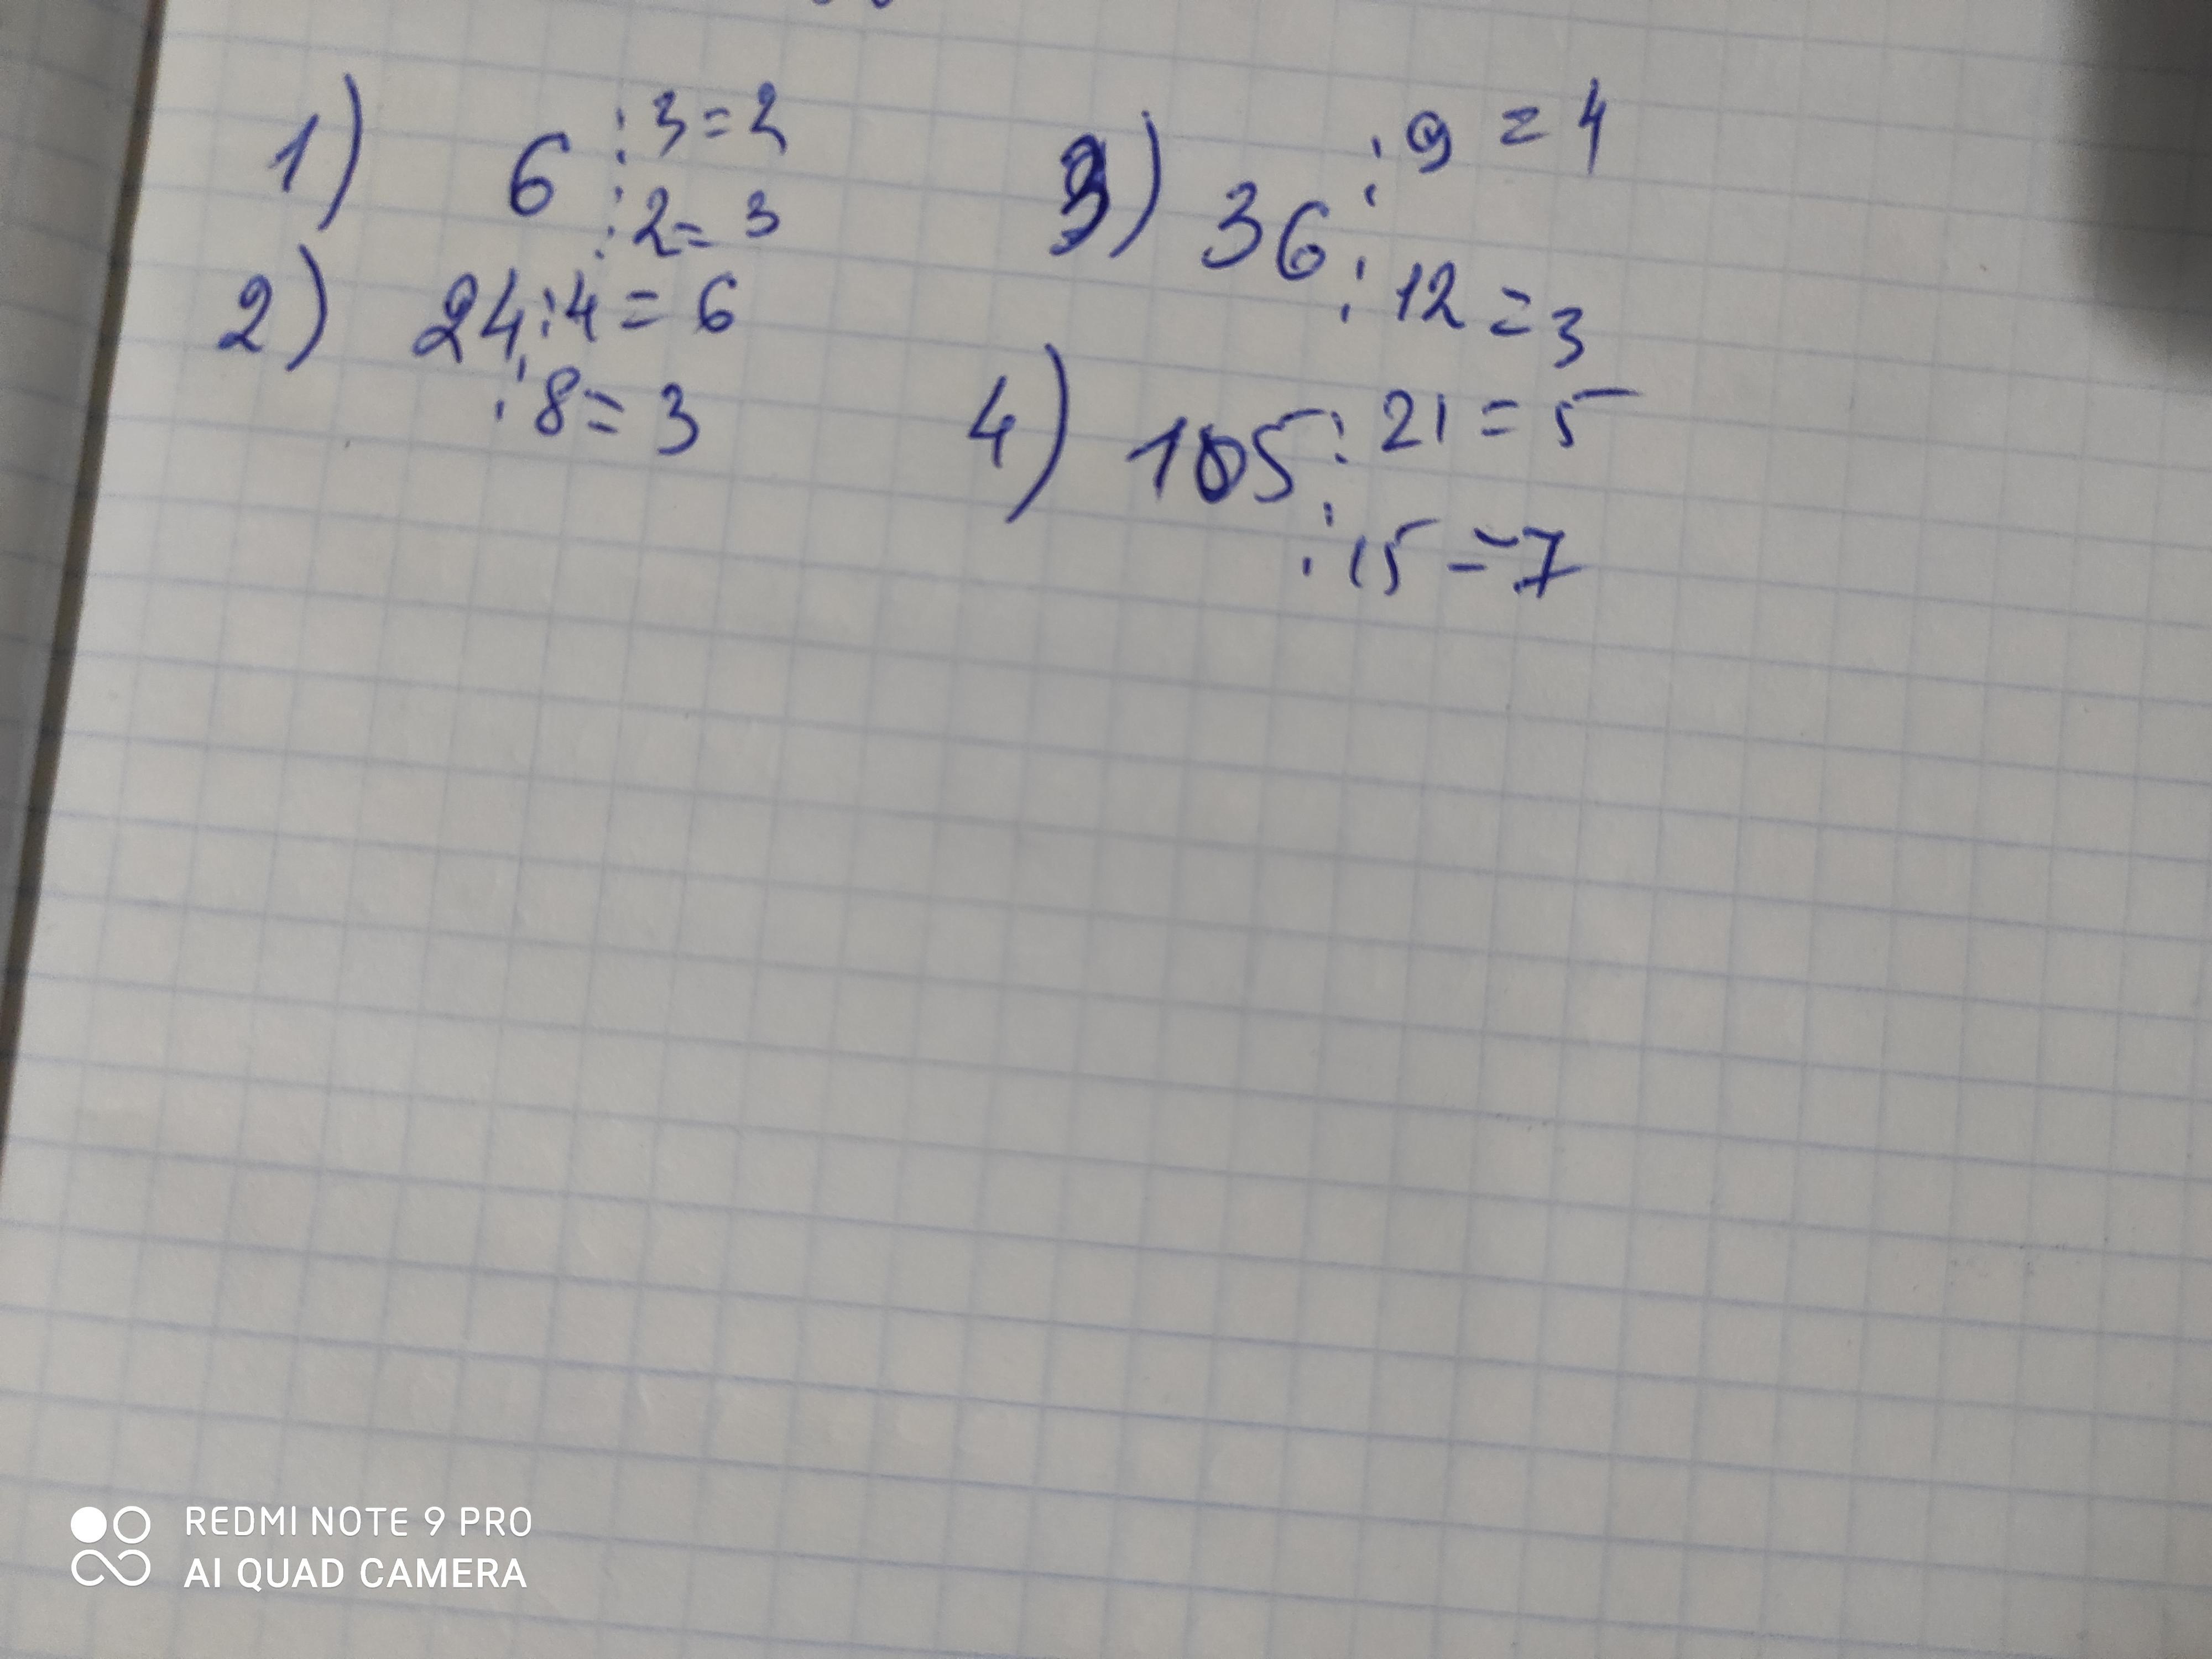 1) 6 : 3 = 2
: 2 = 3
2) 24 : 4 = 6
: 8 = 3
3) 36 : 9 = 4
: 12 = 3
4) 105 : 21 = 5
: 15 = 7
REDMI NOTE 9 PRO
AI QUAD CAMERA